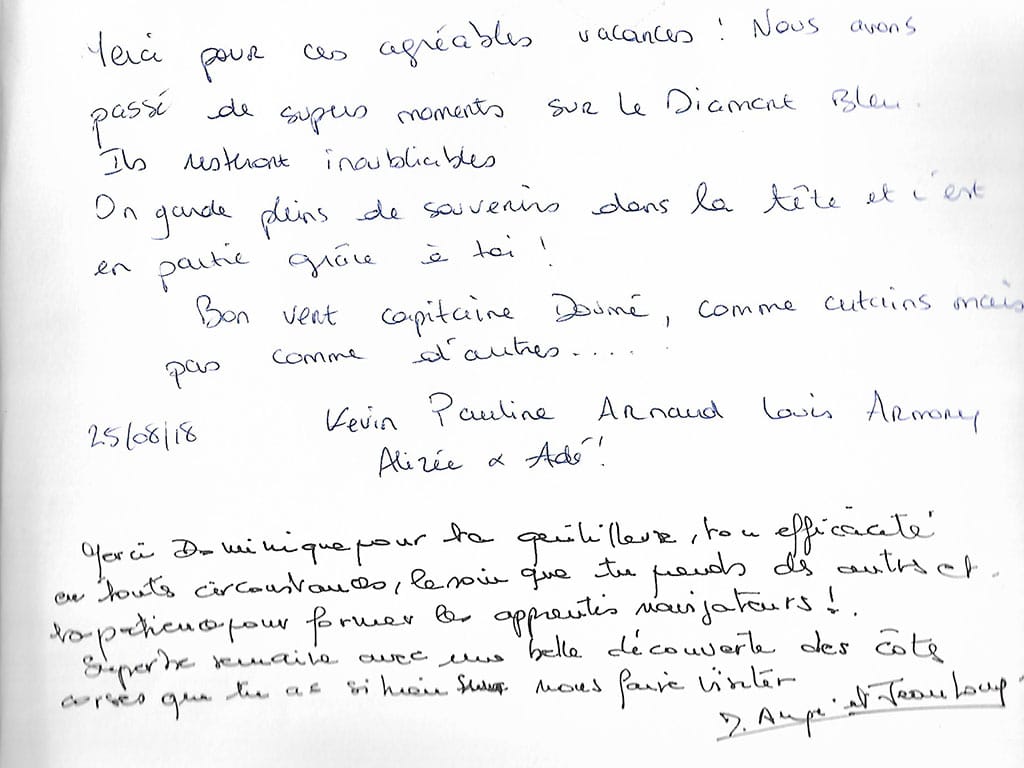 Merci pour ces agréables vacances ! Nous avons
passé de supers moments sur le Diamant Bleu.
Ils resteront inoubliables
On garde pleins de souvenirs dans la tête et c'est
en partie grâce à toi !
Bon vent capitaine Doumé, comme cutains mais
pas comme d'autres.....
25/08/18 Kevin Pauline Arnaud Louis Armony
Alizée & Adé !
Merci Dominique pour ta gentillesse, ton efficacité
en toutes circonstances, le soin que tu prends des autres et
ta patience pour former les apprentis navigateurs !.
Superbe semaine avec une belle découverte des côtes
corses que tu as si bien nous faire visiter
et Jean Loup